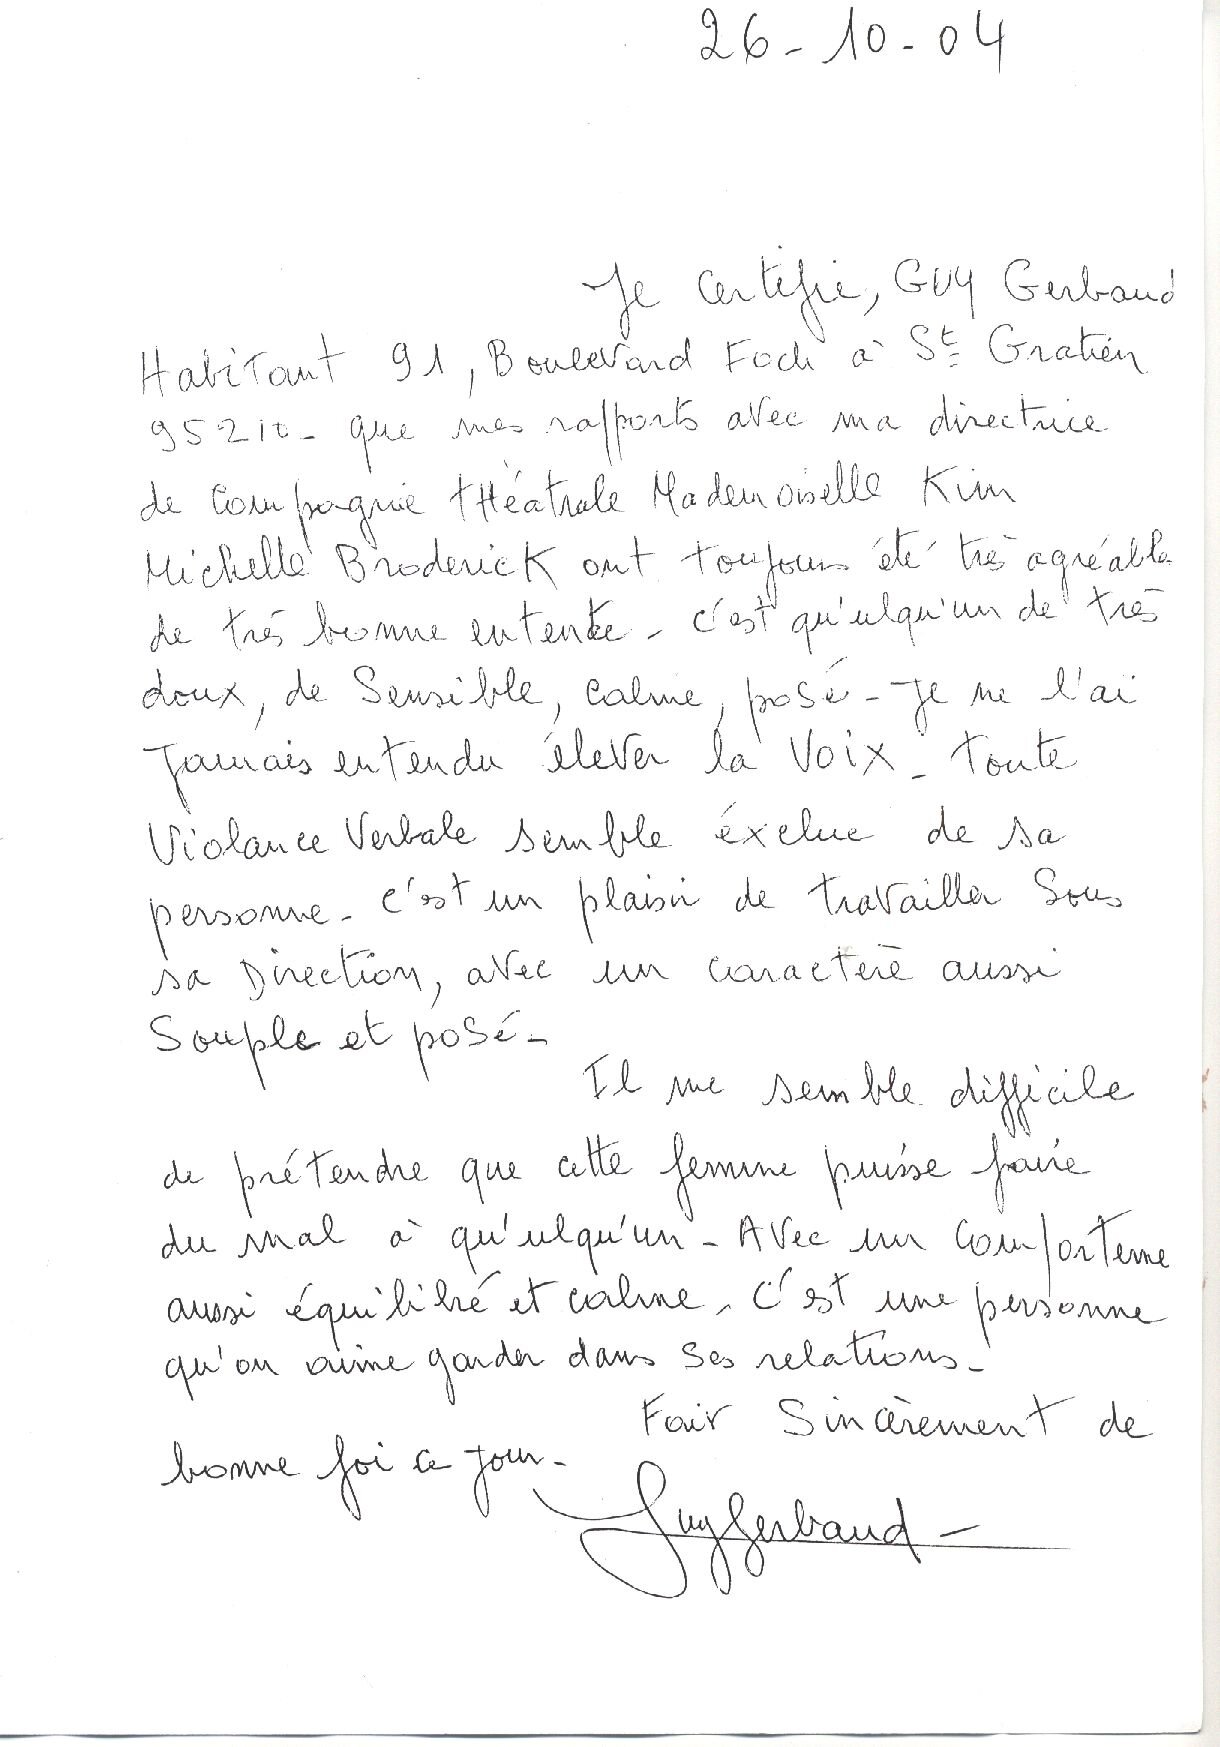 26-10-04
Je certifie, GUY Gerbaud
Habitant 91, Boulevard Foch à St Gratien
95210- que mes rapports avec ma directrice
de compagnie théatrale Mademoiselle Kim
Michelle Broderick ont toujours été très agréable
de très bonne entente - c'est qu'ulqu'un de très
doux, de sensible, calme, posé - Je ne l'ai
Jamais entendu élever la Voix - toute
Violance Verbale semble éxclue de sa
personne - c'est un plaisir de travailler sous
sa Direction, avec un caractère aussi
Souple et posé -
Il me semble difficile
de prétendre que cette femme puisse faire
du mal à qu'ulqu'un - Avec un comporteme
aussi équilibré et calme, c'est une personne
qu'on aime garder dans ses relations -
Fair Sincèrement de
bonne foi ce jour -
Guy Gerbaud -